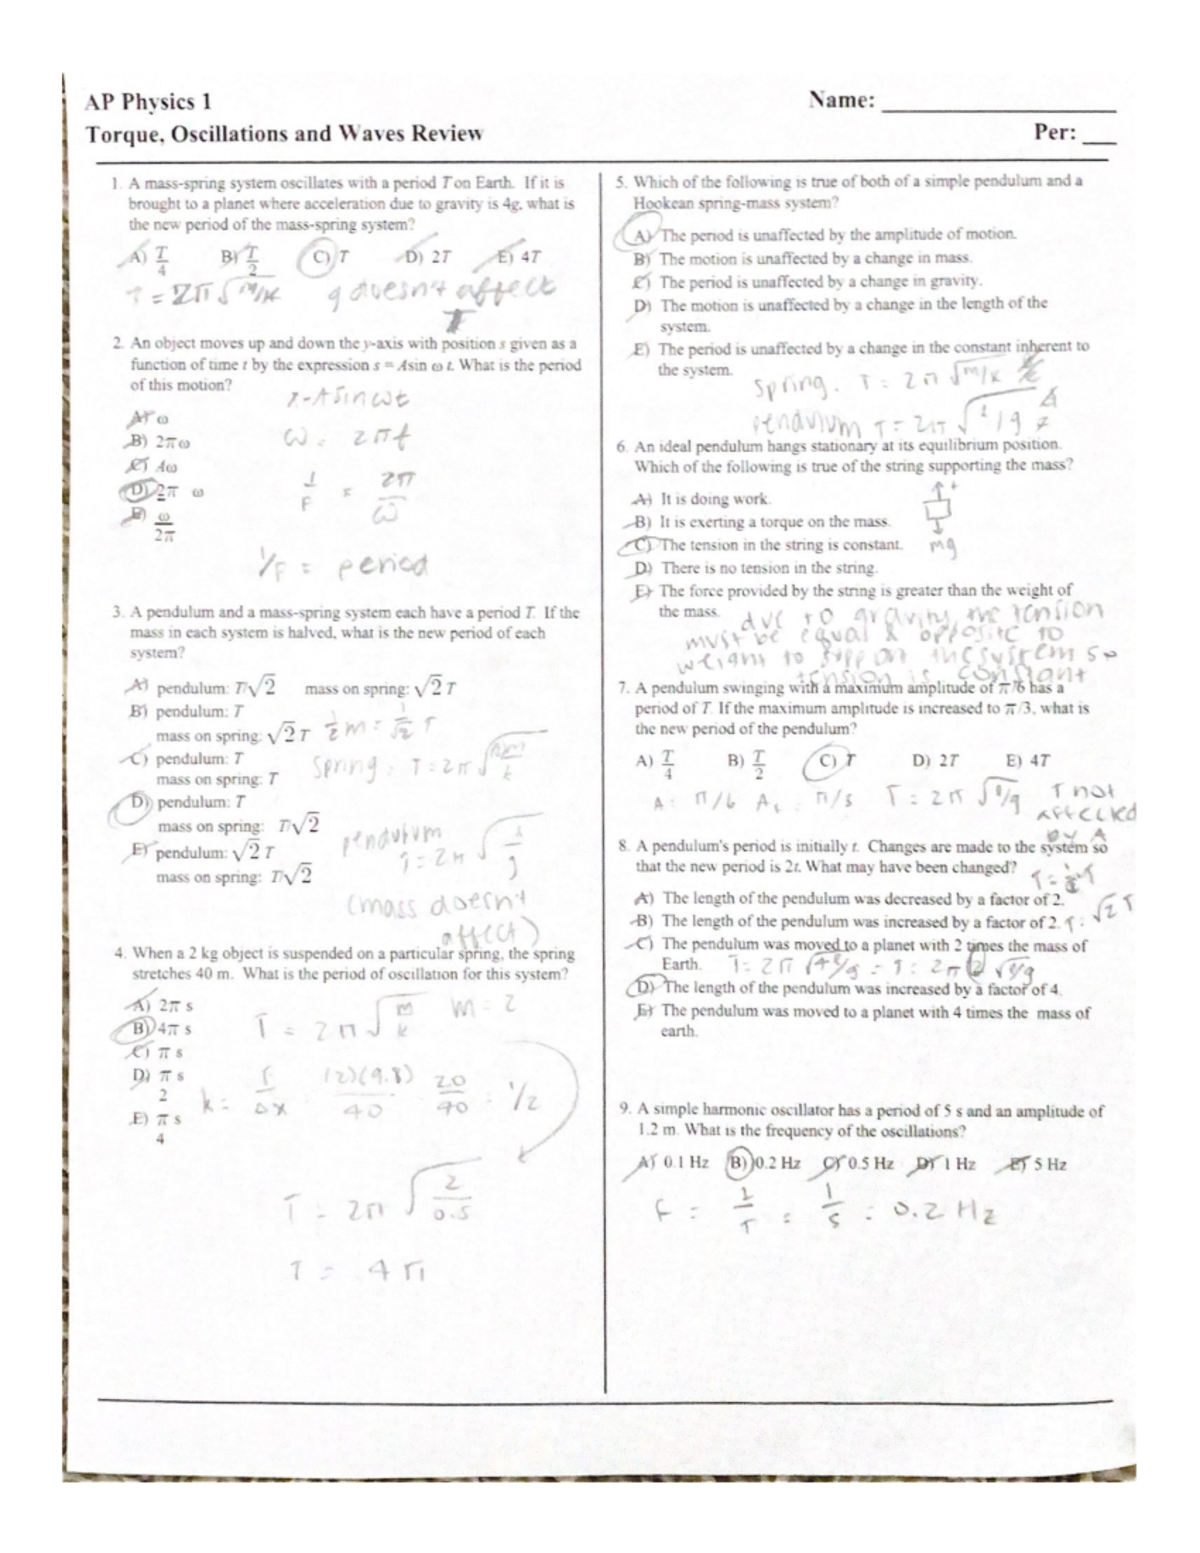 AP Physics 1
Name:
Torque, Oscillations and Waves Review
Per:
1. A mass-spring system oscillates with a period T on Earth. If it is
brought to a planet where acceleration due to gravity is 4g, what is
the new period of the mass-spring system?
A) T/4 B) T/2 C) T D) 2T E) 4T
T = 2π√m/k g doesn't affect
T
2. An object moves up and down the y-axis with position s given as a
function of time t by the expression s = Asin ω t. What is the period
of this motion?
x=Asinωt
A) ω
B) 2πω
ω = 2πf
C) Aω
D) 2π ω
1/F = 2π/ω
E) ω/2π
1/F = period
3. A pendulum and a mass-spring system each have a period T. If the
mass in each system is halved, what is the new period of each
system?
A) pendulum: T/√2 mass on spring: √2 T
B) pendulum: T
mass on spring: √2 T ½m = 1/√2 T
C) pendulum: T
mass on spring: T
spring: T = 2π
D) pendulum: T
mass on spring: T/√2
pendulum
E) pendulum: √2 T
mass on spring: T/√2
(mass doesn't
affect)
4. When a 2 kg object is suspended on a particular spring, the spring
stretches 40 m. What is the period of oscillation for this system?
A) 2π s
B) 4π s
T = 2π√m/k m = 2
C) π s
D) π s
2
k = F/Δx (2)(9.8)/40 20/40 = 1/2
E) π s
4
T = 2π√2/0.5
T = 4π
5. Which of the following is true of both of a simple pendulum and a
Hookean spring-mass system?
A) The period is unaffected by the amplitude of motion.
B) The motion is unaffected by a change in mass.
C) The period is unaffected by a change in gravity.
D) The motion is unaffected by a change in the length of the
system.
E) The period is unaffected by a change in the constant inherent to
the system.
spring: T = 2π√m/k
pendulum T = 2π√l/g
6. An ideal pendulum hangs stationary at its equilibrium position.
Which of the following is true of the string supporting the mass?
A) It is doing work.
B) It is exerting a torque on the mass.
C) The tension in the string is constant.
mg
D) There is no tension in the string.
E) The force provided by the string is greater than the weight of
the mass.
due to gravity, the tension
must be equal & opposite to
weight to support the system so
tension is constant
7. A pendulum swinging with a maximum amplitude of π/6 has a
period of T. If the maximum amplitude is increased to π/3, what is
the new period of the pendulum?
A) T/4 B) T/2 C) T D) 2T E) 4T
A = π/6 T = 2π√l/g T not
affected
by A
8. A pendulum's period is initially t. Changes are made to the system so
that the new period is 2t. What may have been changed?
A) The length of the pendulum was decreased by a factor of 2.
B) The length of the pendulum was increased by a factor of 2. T = √2 T
C) The pendulum was moved to a planet with 2 times the mass of
Earth. T = 2π√4l/g = T = 2π(2)√l/g
D) The length of the pendulum was increased by a factor of 4.
E) The pendulum was moved to a planet with 4 times the mass of
earth.
9. A simple harmonic oscillator has a period of 5 s and an amplitude of
1.2 m. What is the frequency of the oscillations?
A) 0.1 Hz B) 0.2 Hz C) 0.5 Hz D) 1 Hz E) 5 Hz
F = 1/T = 1/5 = 0.2 Hz